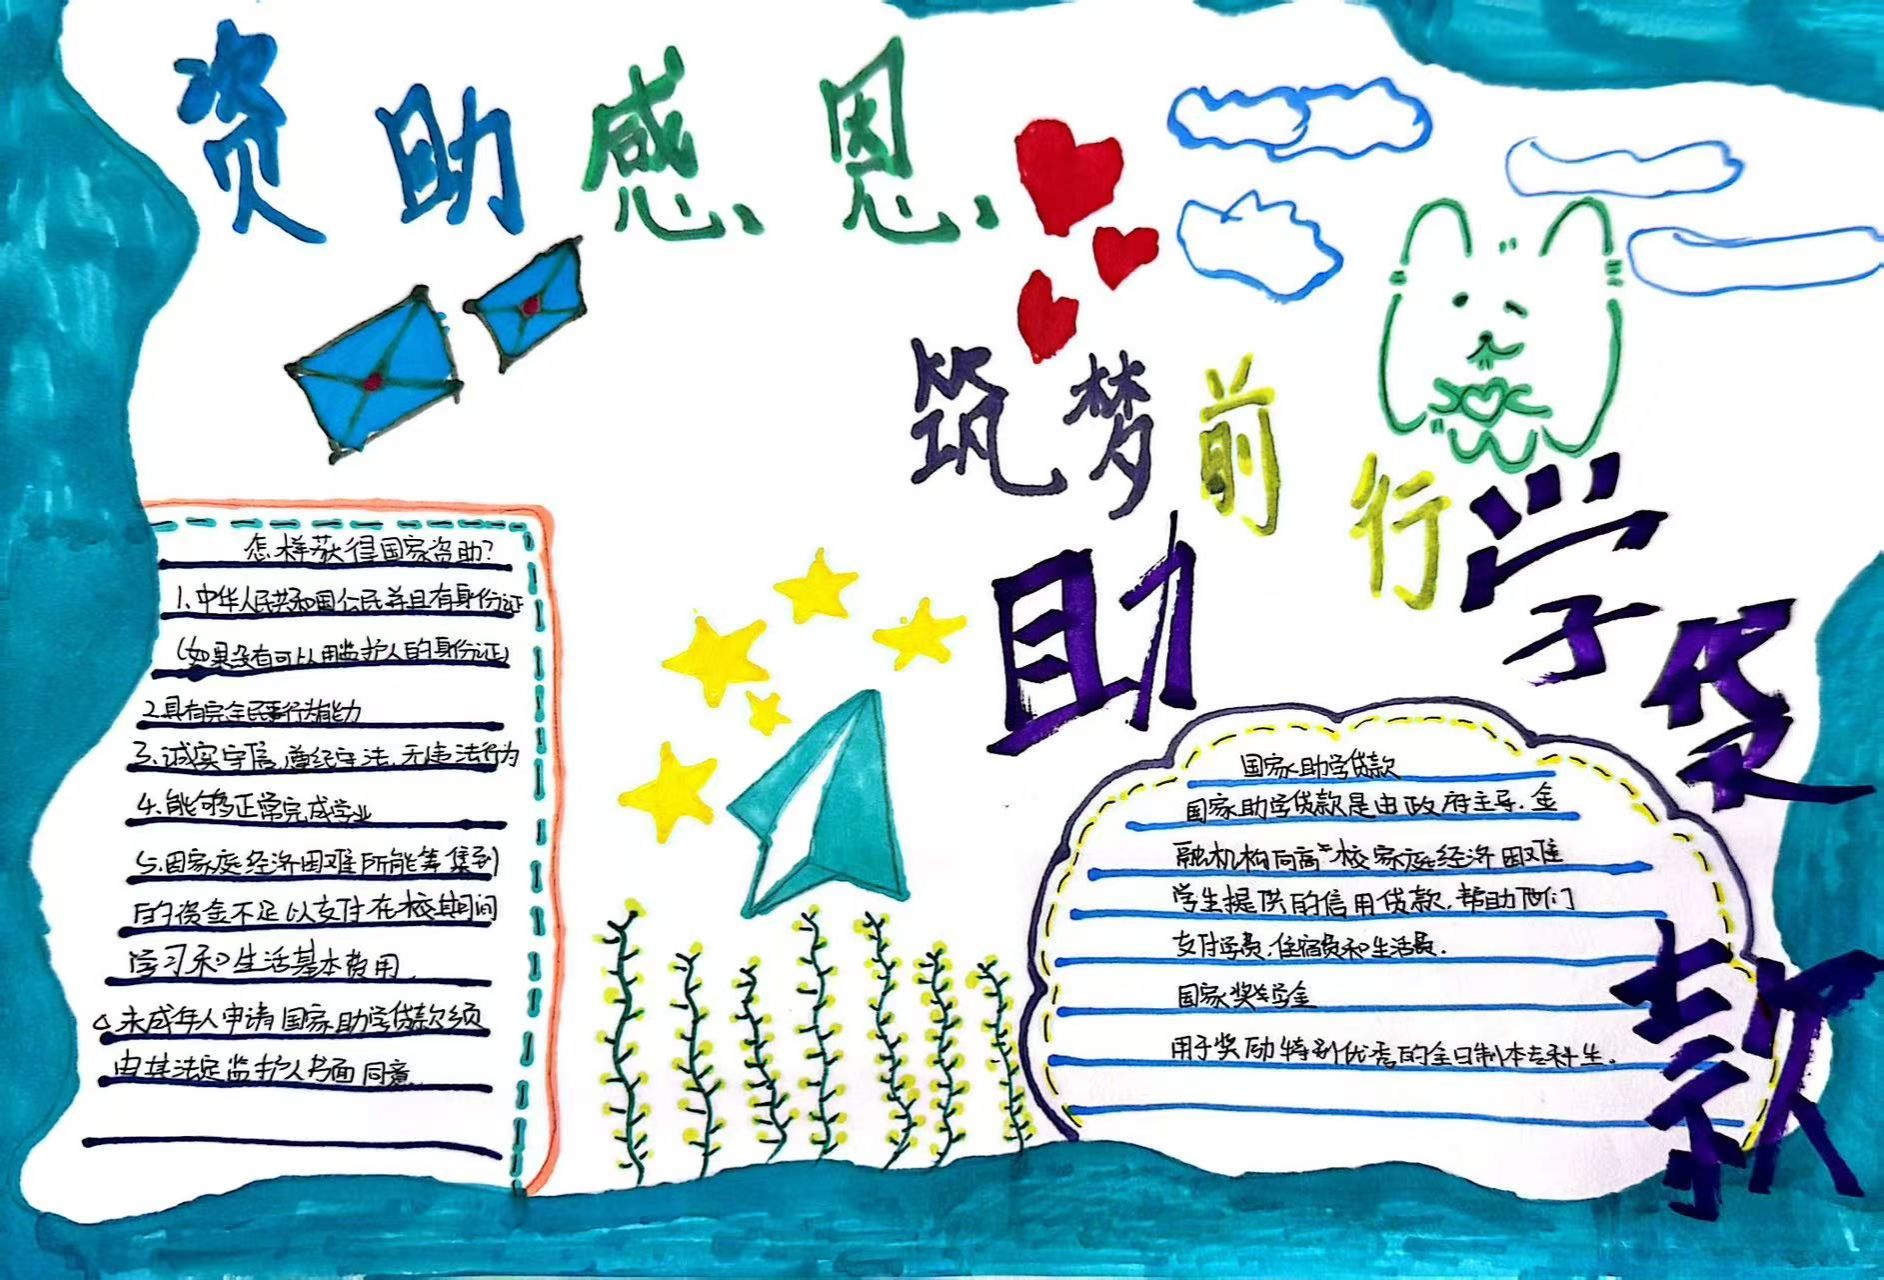 资助感恩
筑梦前行
助学贷款
怎样获得国家资助？
1.中华人民共和国公民并且有身份证
(如果没有可以用监护人的身份证)
2.具有完全民事行为能力
3.诚实守信,遵纪守法,无违法行为
4.能够正常完成学业
5.因家庭经济困难所能筹集到
的资金不足以支付在校期间
学习和生活基本费用.
未成年人申请国家助学贷款须
由其法定监护人书面同意.
国家助学贷款
国家助学贷款是由政府主导.金
融机构向高校家庭经济困难
学生提供的信用贷款,帮助他们
支付学费.住宿费和生活费.
国家奖学金
用于奖励特别优秀的全日制本专科生.